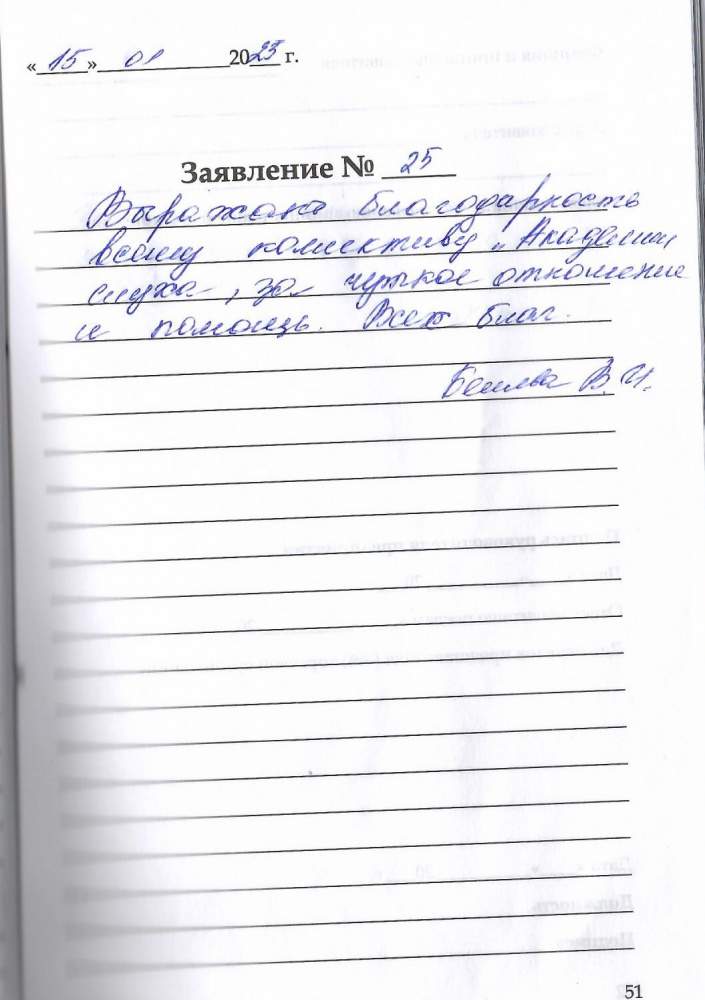 «15» 01 2023 г.
Заявление № 25
Выражаю благодарность
всему коллективу „Академии
слуха", за чуткое отношение
и помощь. Всех благ.
В. И.
51